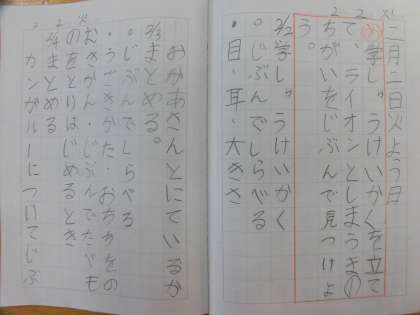 二月二日火よう日
め 学しゅうけいかくを立て
て、ライオンとしまうまの
ちがいをじぶんで見つけよ
う。
2/2学しゅうけいかく
。じぶんでしらべる
・目・耳・大きさ
おかあさんとにているか
2/3まとめる。
。じぶんでしらべる
・うごきかた・おちちをの
むきかん・じぶんでたべも
のをとりはじめるとき
2/4まとめる
カンガルーについてじぶ